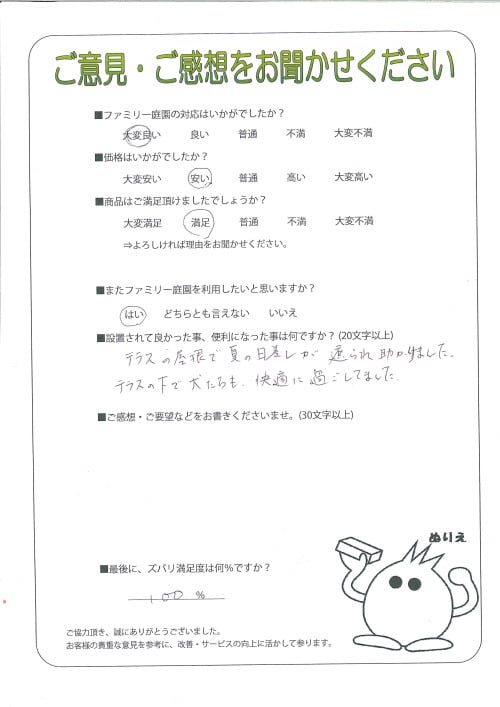 ご意見・ご感想をお聞かせください
■ファミリー庭園の対応はいかがでしたか？
大変良い 良い 普通 不満 大変不満
■価格はいかがでしたか？
大変安い 安い 普通 高い 大変高い
■商品はご満足頂けましたでしょうか？
大変満足 満足 普通 不満 大変不満
⇒よろしければ理由をお聞かせください。
■またファミリー庭園を利用したいと思いますか？
はい どちらとも言えない いいえ
■設置されて良かった事、便利になった事は何ですか？(20文字以上)
テラスの屋根で夏の日差しが遮られ助かりました。
テラスの下で犬たちも、快適に過ごしてました。
■ご感想・ご要望などをお書きくださいませ。(30文字以上)
ぬりえ
■最後に、ズバリ満足度は何％ですか？
100 %
ご協力頂き、誠にありがとうございました。
お客様の貴重な意見を参考に、改善・サービスの向上に活かして参ります。